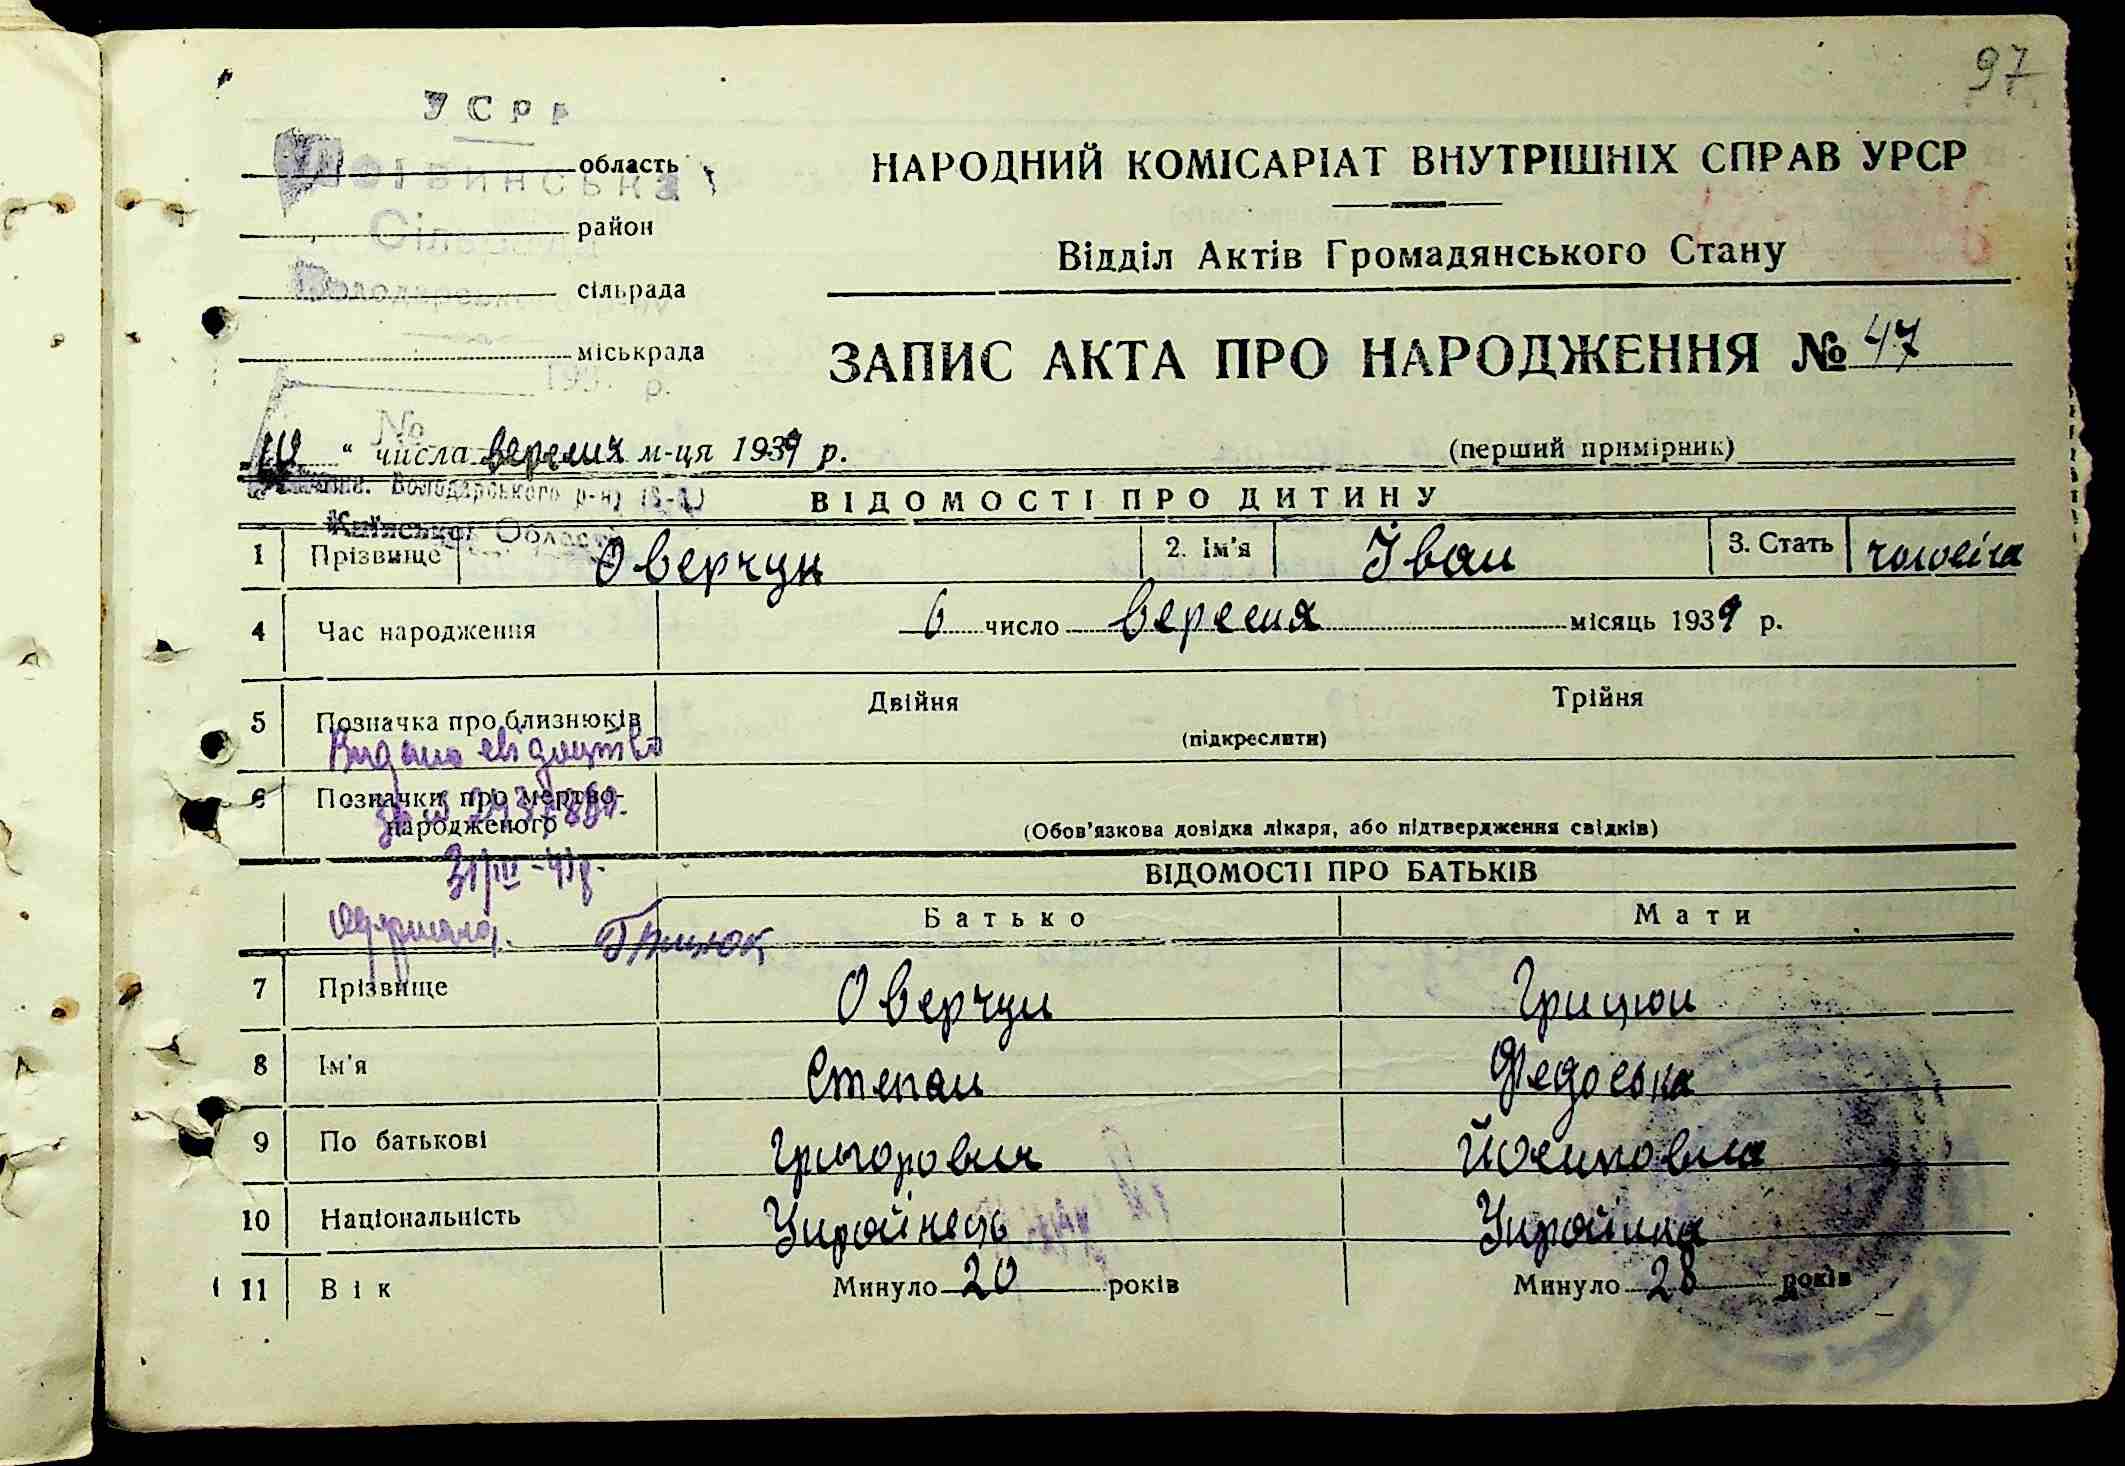 97
УСРР
область
НАРОДНИЙ КОМІСАРІАТ ВНУТРІШНІХ СПРАВ УРСР
район
Сільрада
Відділ Актів Громадянського Стану
сільрада
міськрада
ЗАПИС АКТА ПРО НАРОДЖЕННЯ № 47
193 р.
№
10 " числа вересня м-ця 1939 р.
(перший примірник)
Володарського р-ну
Київської Області
ВІДОМОСТІ ПРО ДИТИНУ
1 Прізвище Оверчук 2. Ім'я Іван 3. Стать чоловіча
4 Час народження 6 число вересня місяць 1939 р.
5 Позначка про близнюків Двійня Трійня
(підкреслити)
Видано свідоцтво
6 Позначки про мертво-
народженого
(Обов'язкова довідка лікаря, або підтвердження свідків)
31/III-41р.
ВІДОМОСТІ ПРО БАТЬКІВ
Батько Мати
одержала Грицюк
7 Прізвище Оверчук Грицюк
8 Ім'я Степан Федоська
9 По батькові Григорович Йосиповна
10 Національність Українець Українка
11 Вік Минуло 20 років Минуло 28 років